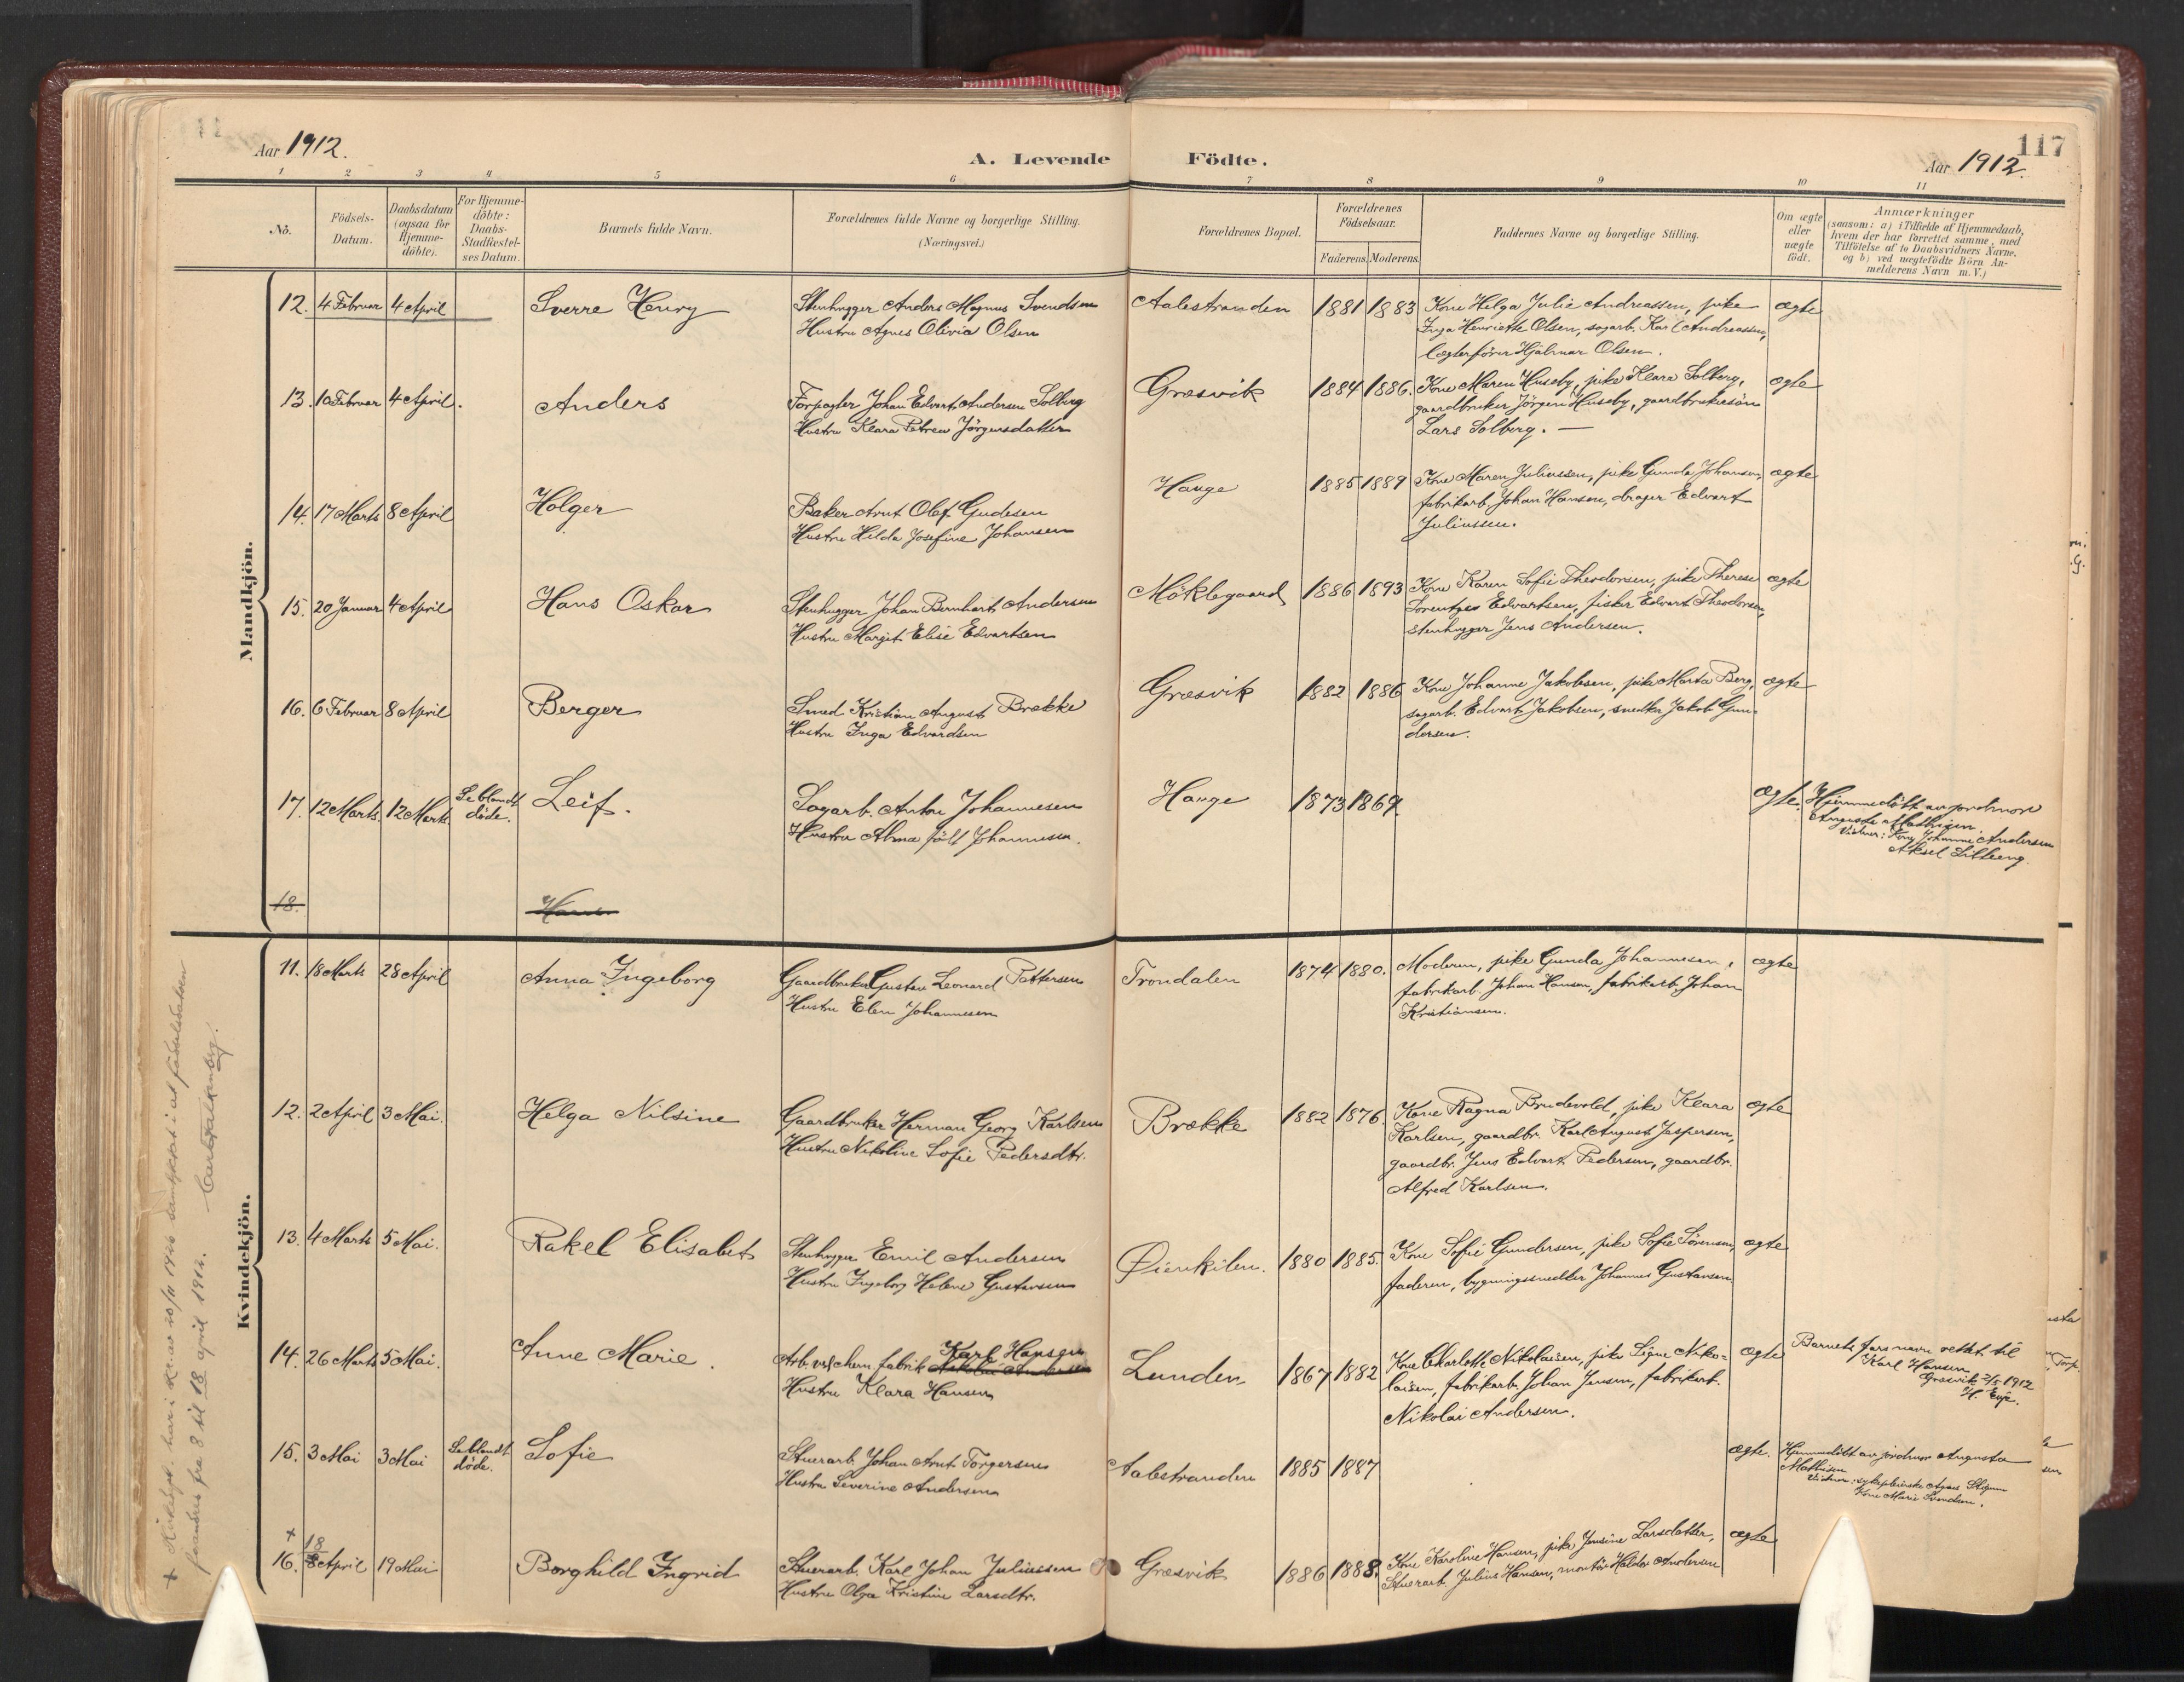 117
Aar 1912.
A. Levende Födte.
Aar 1912.
1 2 3 4 5 6 7 8 9 10 11
No.
Födsels-Datum.
Daabsdatum (ogsaa for Hjemme-döbte).
For Hjemme-döbte: Daabs-Stadfæstel-ses Datum.
Barnets fulde Navn.
Forældrenes fulde Navne og borgerlige Stilling. (Næringsvei.)
Forældrenes Bopæl.
Forældrenes Födselsaar.
Faderens. Moderens.
Faddernes Navne og borgerlige Stilling.
Om ægte eller uægte födt.
Anmærkninger
(saasom: a) i Tilfælde af Hjemmedaab,
hvem der har forrettet samme, med
Tilföielse af to Daabsvidners Navne,
og b) ved uægtefödte Börn An-
melderens Navn m. V.)
Mandkjön.
12. 4 Februar 4 April Sverre Henry Stenhugger Anders Magnus Svendsen Aalestranden 1881 1883 Kone Helga Julie Andreassen, pike ægte
Hustru Agnes Olivia Olsen Inga Henriette Olsen, sagarb. Karl Andreassen,
lægterfører Hjalmar Olsen.
13. 10 Februar 4 April. Anders Forpagter Johan Edvart Andersen Solberg Græsvik 1884 1886. Kone Maren Huseby, pike Klara Solberg, ægte
Hustru Klara Petrea Jörgensdatter gaardbruker Jörgen Huseby, gaardbrukersön
Lars Solberg. —
14. 17 Marts 8 April Holger Baker Arnt Olaf Gudesen Hauge 1885 1889 Kone Maren Juliussen, pike Gunda Johansen, ægte
Hustru Hilda Josefine Johansen fabrikarb. Johan Hansen, drager Edvart
Juliussen.
15. 20 Januar 4 April Hans Oskar Stenhugger Johan Bernhart Andersen Möklegaard 1886 1893 Kone Karen Sofie Theodorsen, pike Therese ægte
Hustru Margit Elise Edvartsen Lorentze Edvartsen, fisker Edvart Theodorsen,
stenhugger Jens Andersen.
16. 6 Februar 8 April Berger Smed Kristian August Brække Græsvik 1882 1886 Kone Johanne Jakobsen, pike Marta Berg, ægte
Hustru Inga Edvardsen sagarb. Edvart Jakobsen, snedker Jakob Gun-
dersen.
17. 12 Marts. 12 Marts. Se blandt döde. Leif. Sagarb. Anton Johannesen Hauge 1873 1869. ægte. Hjemmedöbt av jordmor
Hustru Alma födt Johannesen. Augusta Mathisen.
Vidner: Kone Johanne Andersen
Aksel Lilleeng.
18. Hans
Kvindekjön.
11. 18 Marts 28 April Anna Ingeborg Gaardbruker Gustav Leonard Pettersen Trondalen 1874 1880. Moderen, pike Gunda Johannesen, ægte
Hustru Elen Johannesen fabrikarb. Johan Hansen, fabrikarb. Johan
Kristiansen.
12. 2 April 3 Mai. Helga Nilsine Gaardbruker Herman Georg Karlsen Brække 1882 1876. Kone Ragna Brudevold, pike Klara ægte
Hustru Nikoline Sofie Pedersdtr. Karlsen, gaardbr. Karl August Jespersen,
gaardbr. Jens Edvart Pedersen, gaardbr.
Alfred Karlsen.
13. 4 Marts 5 Mai. Rakel Elisabet Stenhugger Emil Andersen Øienkilen. 1880 1885. Kone Sofie Gundersen, pike Sofie Sörensen, ægte
Hustru Ingeborg Helene Gustavsen faderen, bygningssnedker Johannes Gustavsen
14. 26 Marts 5 Mai. Anne Marie. Arb. ved chem. fabrik Nikolai Andersen Karl Hansen Lunden 1867 1882 Kone Charlotte Nikolaisen, pike Signe Niko- ægte Barnets fars navn rettet til
Hustru Klara Hansen laisen, fabrikarb. Johan Jensen, fabrikarb. Karl Hansen
Nikolai Andersen. Græsvik 2/5 1912
H. Evje.
15. 3 Mai 3 Mai Se blandt döde. Sofie Stuerarb. Johan Arnt Torgersen Aalestranden 1885 1887 ægte. Hjemmedöbt av jordmor Augusta
Hustru Severine Andersen Mathisen
Vidner: sykepleierske Agnes
Kone Marie Svendsen.
+
16. 18/8 April 19 Mai Borghild Ingrid Stuerarb. Karl Johan Juliussen Græsvik 1886 1888. Kone Karoline Hansen, pike Jensine Larsdatter, ægte
Hustru Olga Kristine Larsdtr. Stuerarb. Julius Hansen, montör Haldor Andersen
+ Kirkedept. har i skr. av 20/11 1946 samtykket i at födselsdatoen
forandres fra 8 til 18 april 1912.